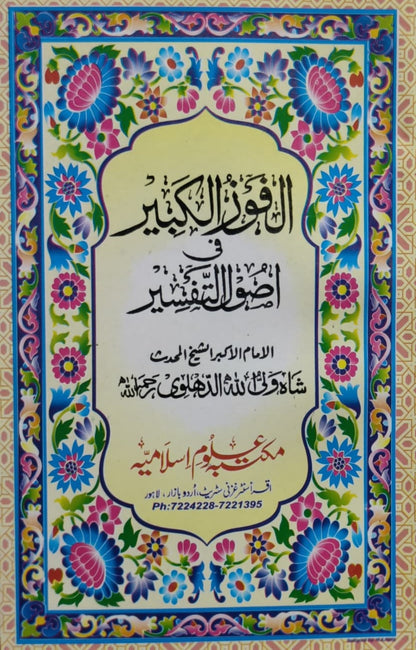 الفوز الكبير
فى
اصول التفسير
الامام الاكبر الشيخ المحدث
شاه ولى الله الدهلوى رحمہ اللہ
مکتبہ علوم اسلامیہ
اقرأ سنٹر غزنی سٹریٹ، اُردو بازار، لاہور
Ph:7224228-7221395